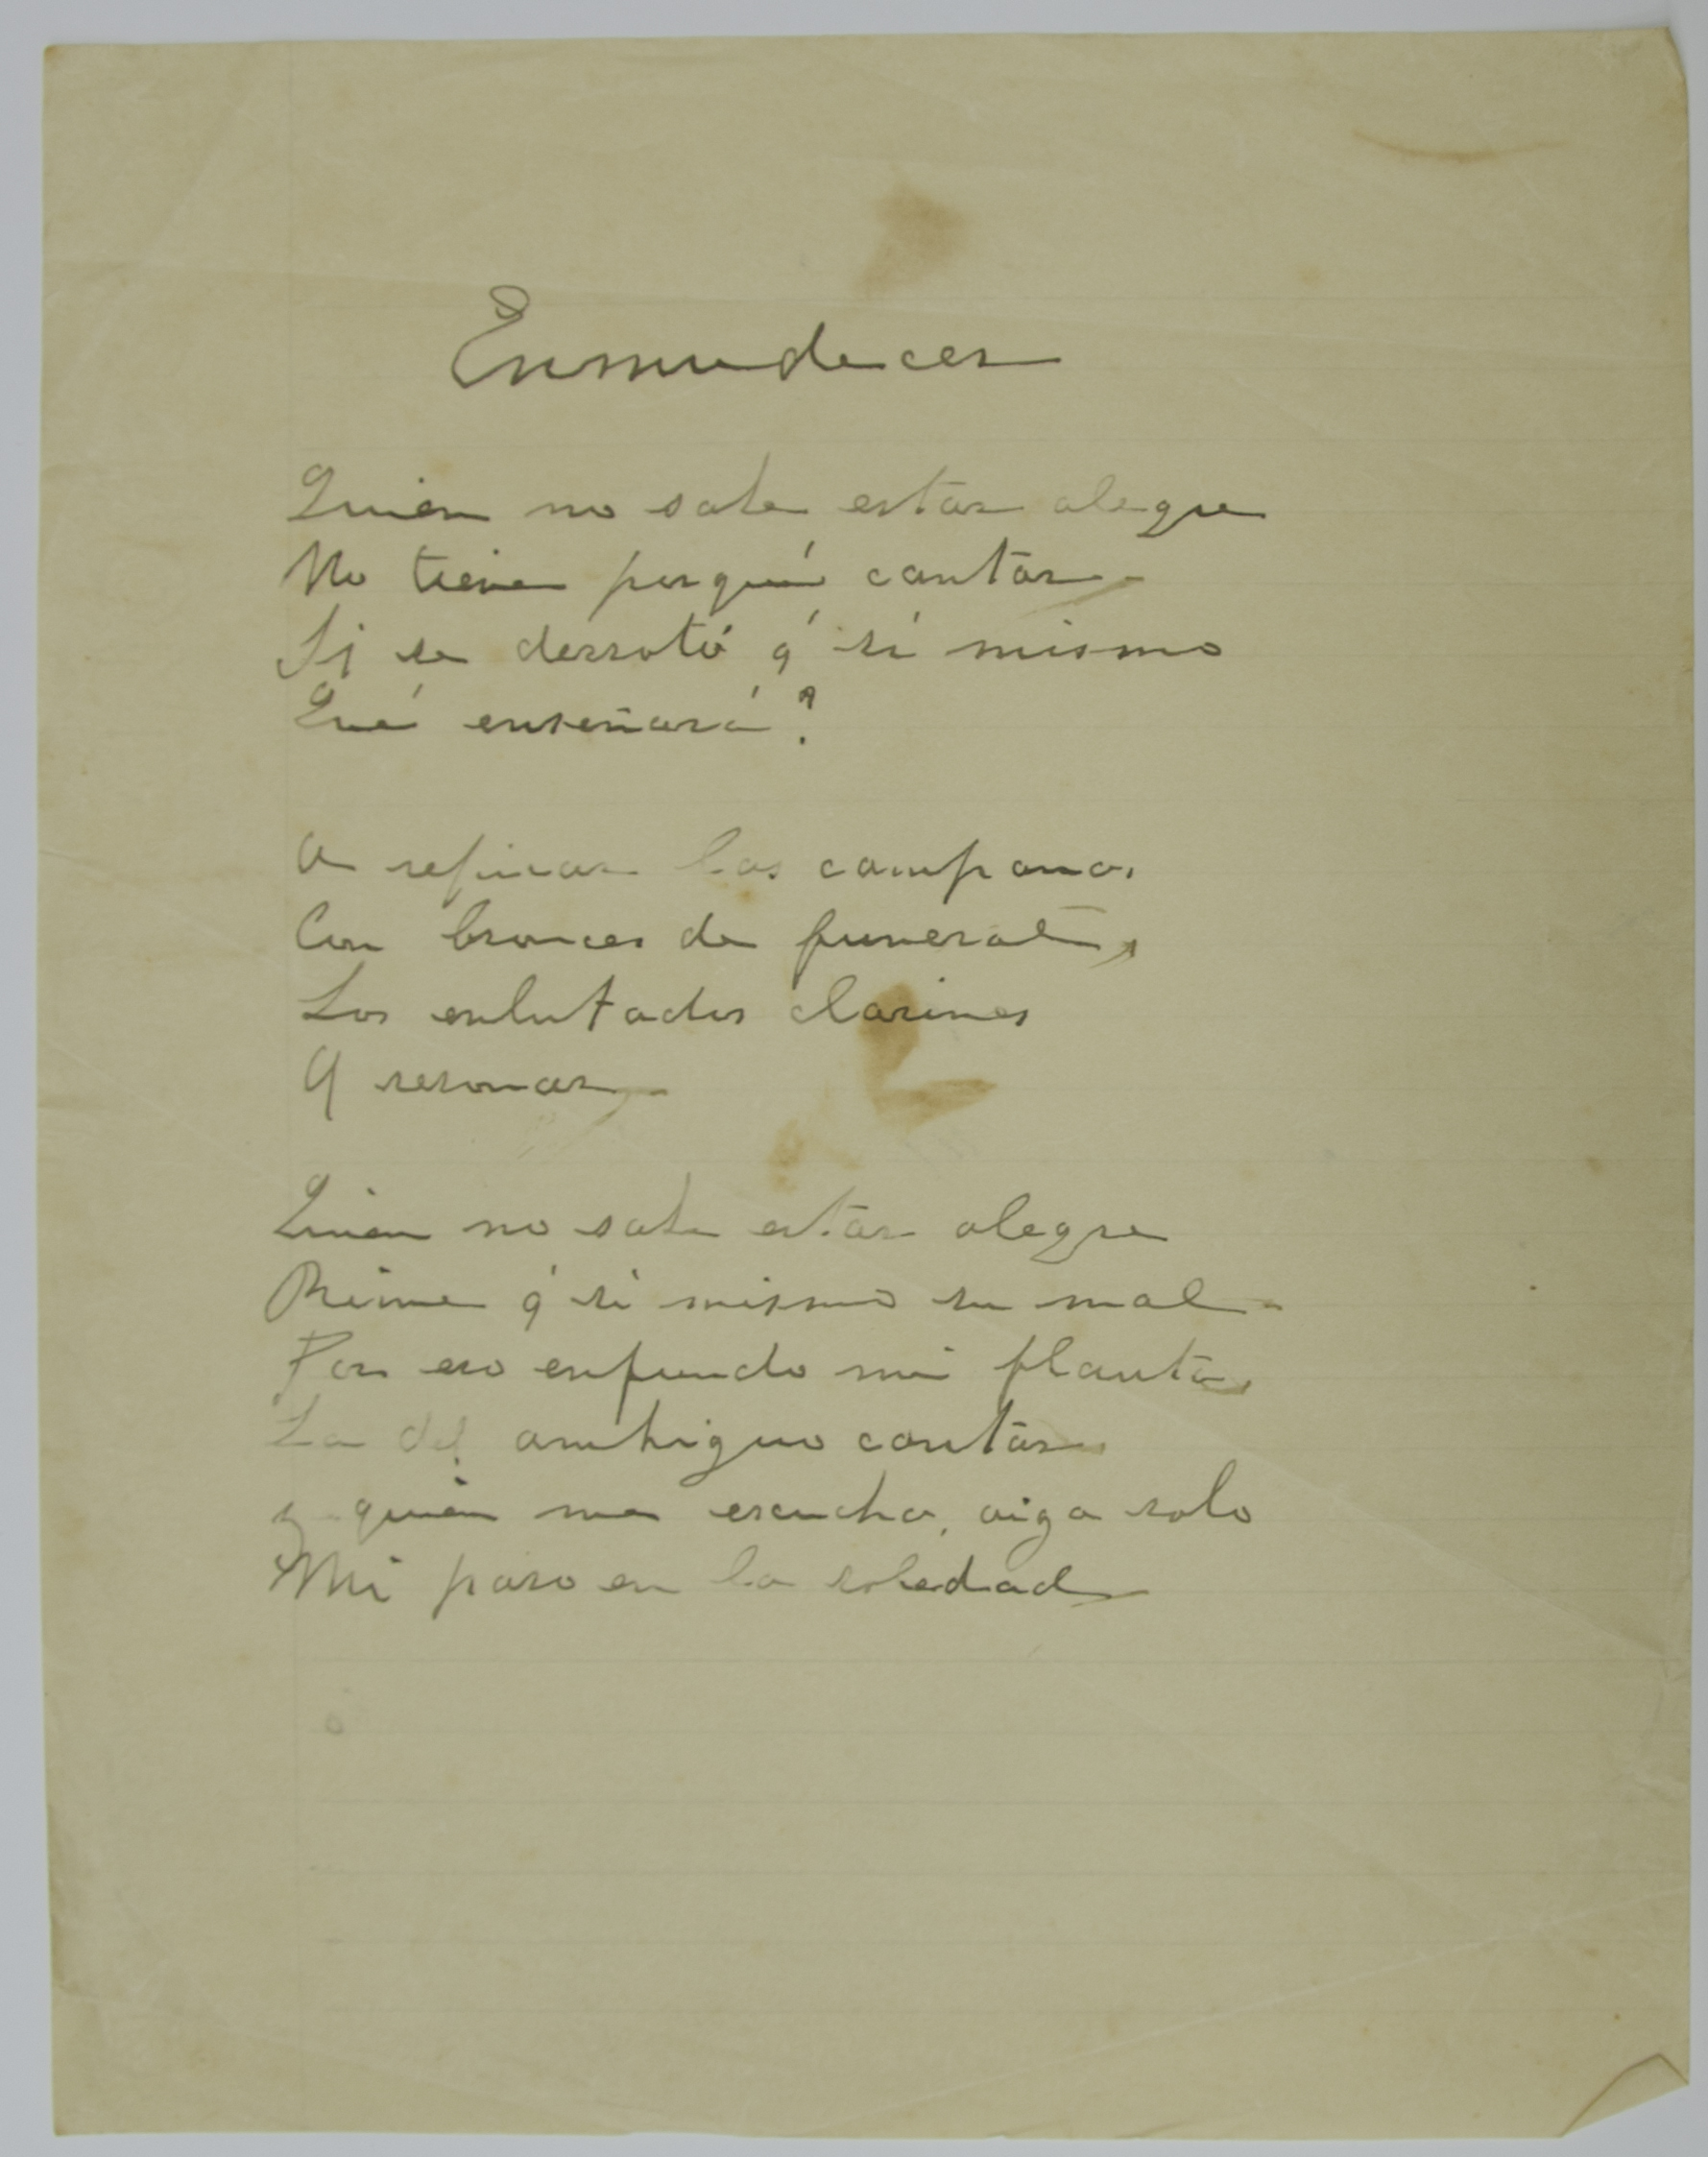 Enmudecer
Quien no sabe estar alegre
No tiene porqué cantar.
Si se derrotó á sí mismo
Qué enseñará?
A repicar las campanas
Con bronces de funeral,
Los enlutados clarines
A resonar.
Quien no sabe estar alegre
Rime á sí mismo su mal.
Por eso enfundo mi flauta,
La del ambiguo cantar
y quien me escucha, oiga solo
Mi paso en la soledad